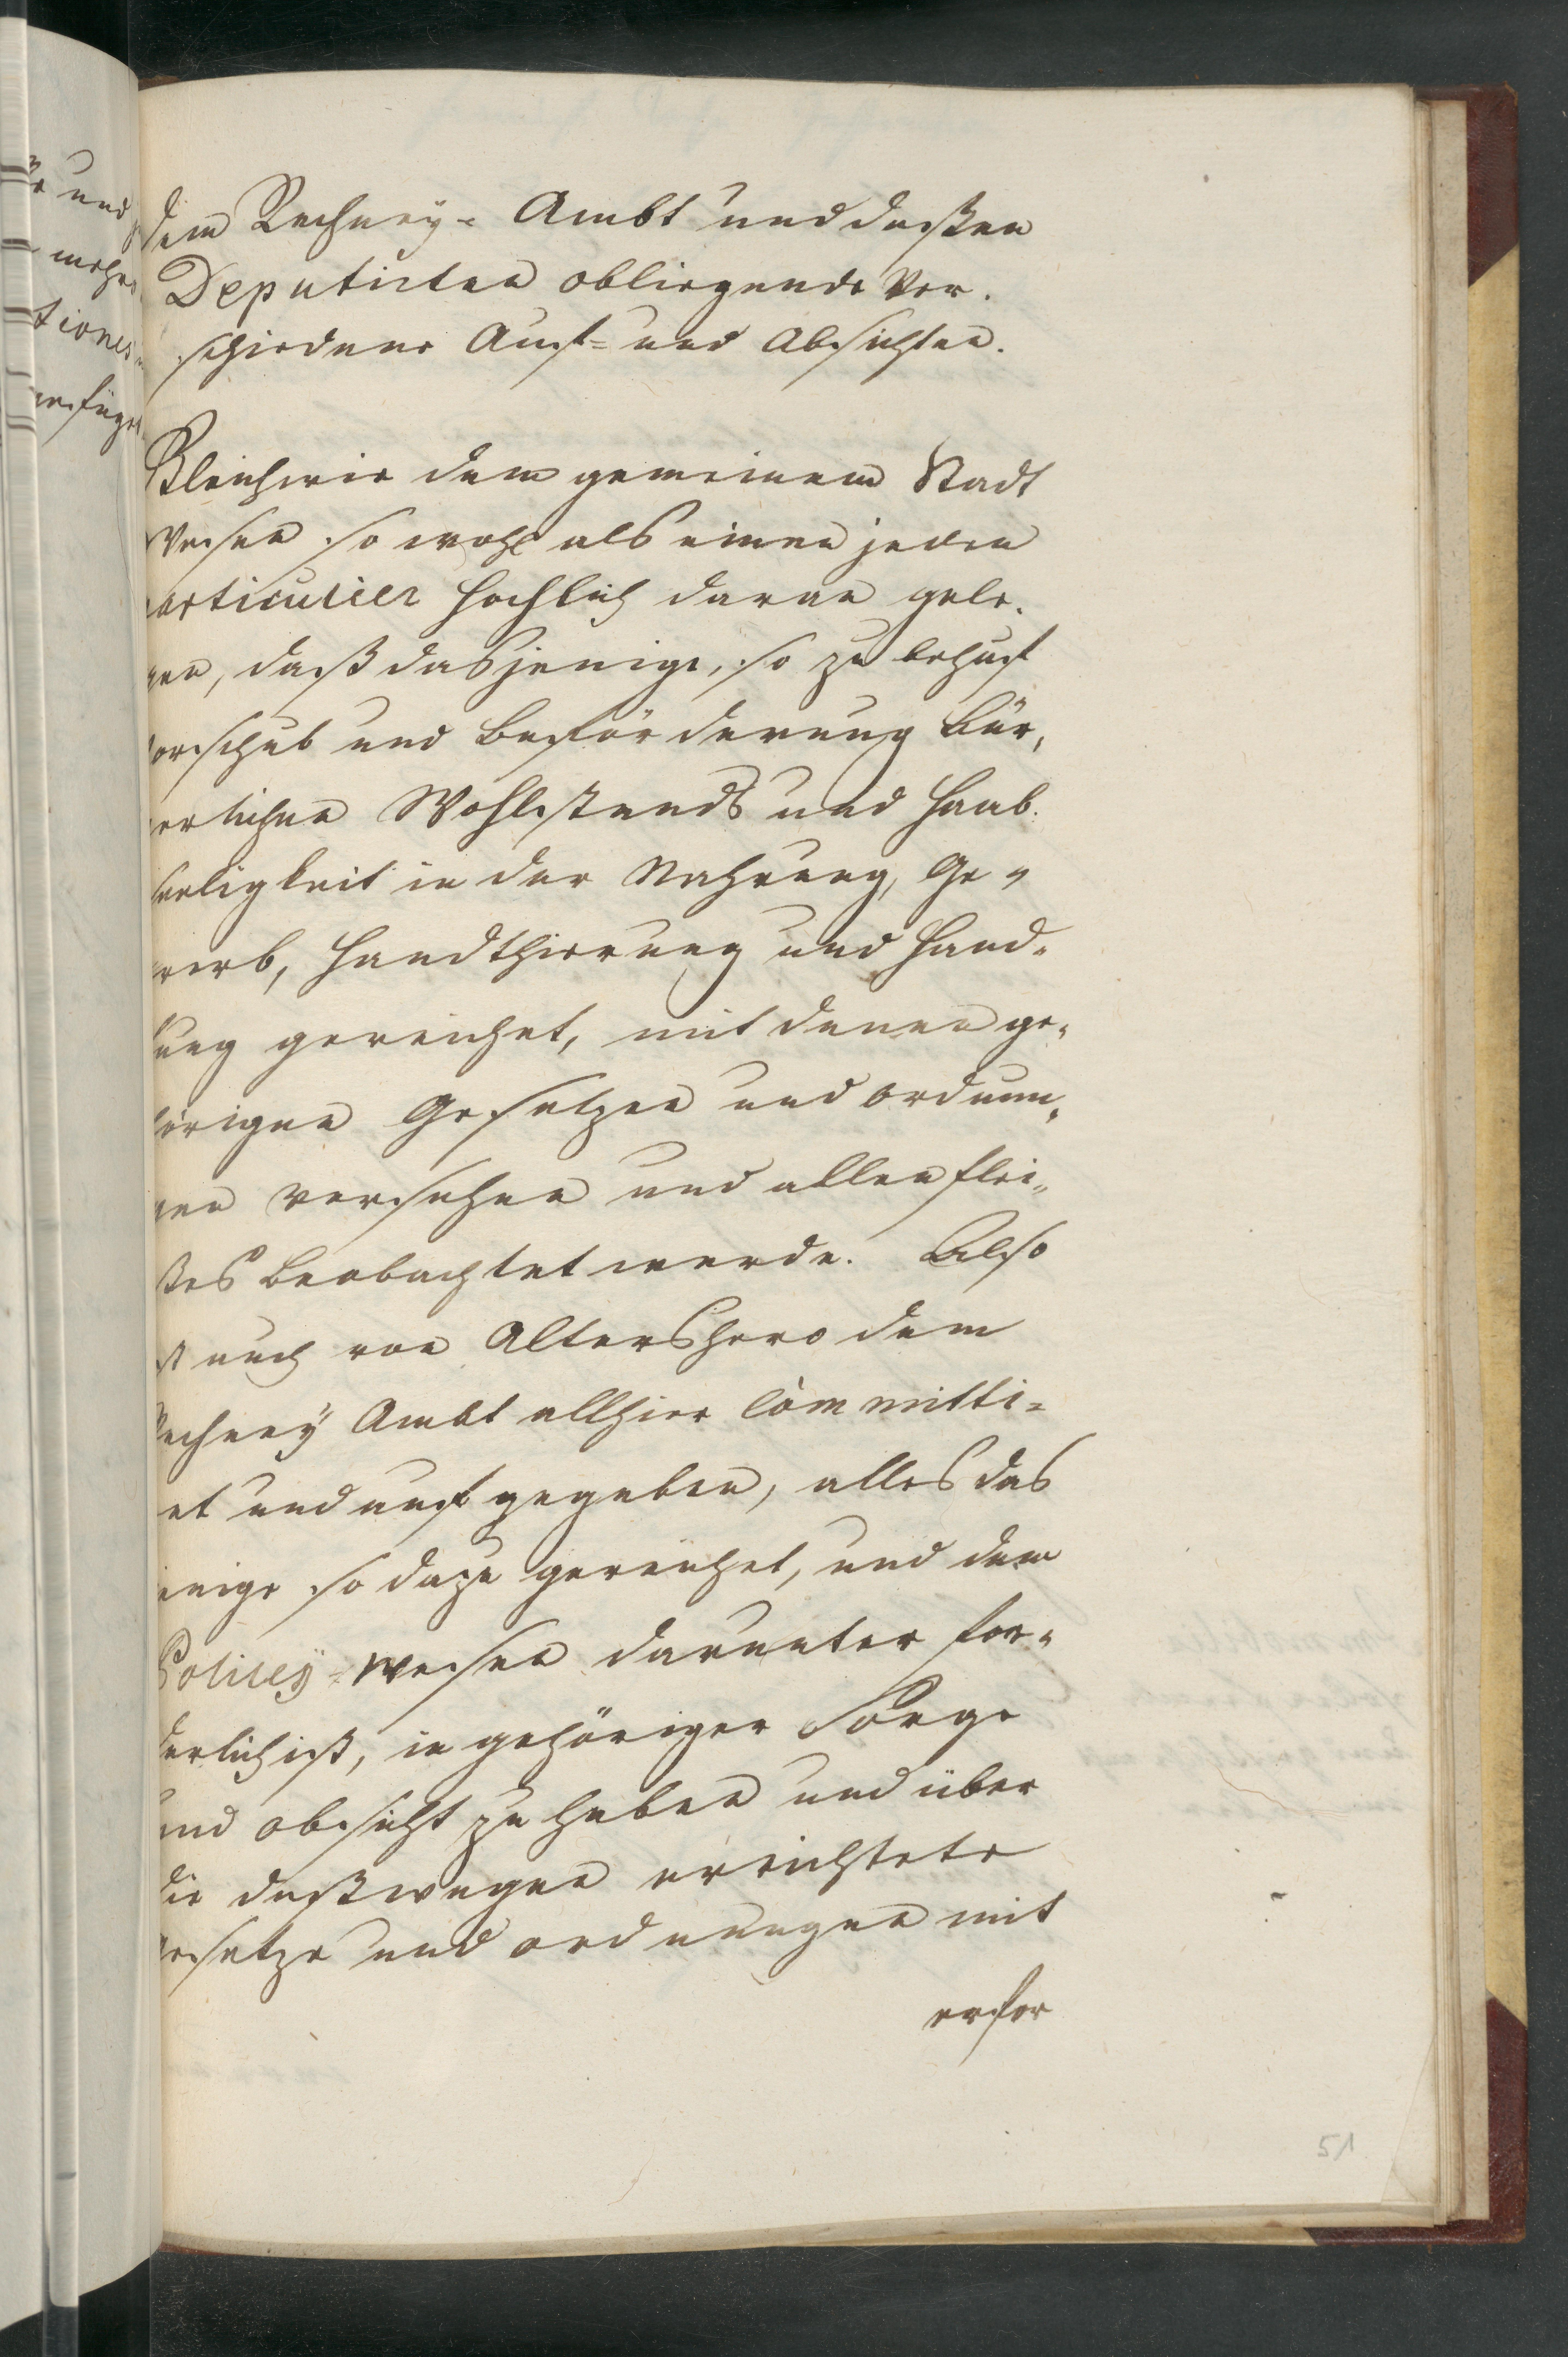 dem Rechney- Ambt und deßen
Deputirten obliegende Ver-
schiedene Auf- und Absichten.
Gleichwie dem gemeinem Stadt
Wesen so wohl als einen jeden
particulier höchlich daran gele-
gen, daß dasjenige, so zu behuf
vorschub und beförderung bür,
gerlichen Wohlstands und Haab-
seeligkeit in der Nahrung, Ge-
werb, Handthierung und Hand-
lung gereichet, mit denen ge-
hörigen Gesetzen und ordnun,
gen versehen und allen flei,,
ßes beobachtet werde. Also
ist auch von Altershero dem
Rechney Ambt allhier Committi-
ret und aufgegeben, alles das
jenige so dazu gereichet, und dem
Policey-wesen darunter för-
derlich ist, in gehöriger Sorge
und obsicht zu haben und über
die deßwegen errichtete
Gesetze und ordnungen mit
erfor
51
und
mehr
tiones